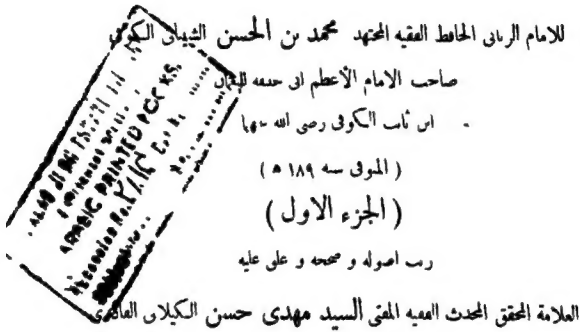 للامام الربانى الحافظ الفقيه المجتهد محمد بن الحسن الشيبانى الكوفى
صاحب الامام الأعظم ابى حنيفة النعمان
ابن ثابت الكوفى رضى الله عنهما
( المتوفى سنة ١٨٩ ه )
( الجزء الاول )
رتب اصوله و صححه و علق عليه
العلامة المحقق المحدث الفقيه المفتى السيد مهدى حسن الكيلانى القادرى
ARABIC PRINTED